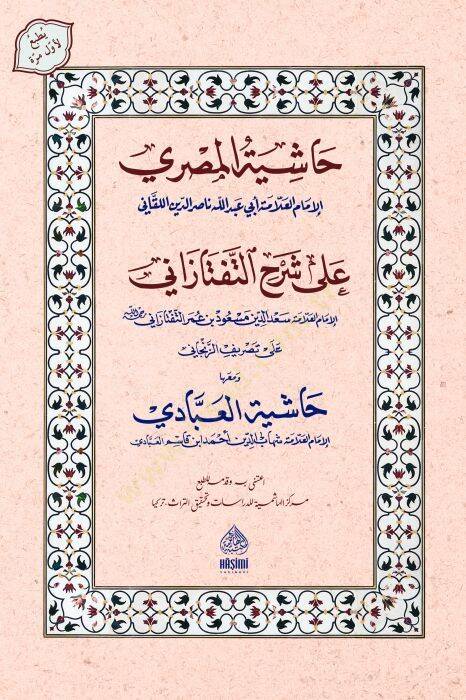 يُطبع
لأول مرة
حَاشِيَةُ المِصْرِي
الإمام العلامة أبي عبد الله ناصر الدين اللقاني
عَلَى شَرْحِ التَّفْتَازَانِي
الإمام العلامة سعد الدين مسعود بن عمر التفتازاني رحمه الله
على تصريف الزنجاني
ومعها
حاشية العَبَّادي
الإمام العلامة شهاب الدين أحمد ابن قاسم العبَّادي
اعتنى به وقدمه للطبع
مركز الهاشمية للدراسات وتحقيق التراث، تركيا
HAŞİMİ
YAYINEVİ